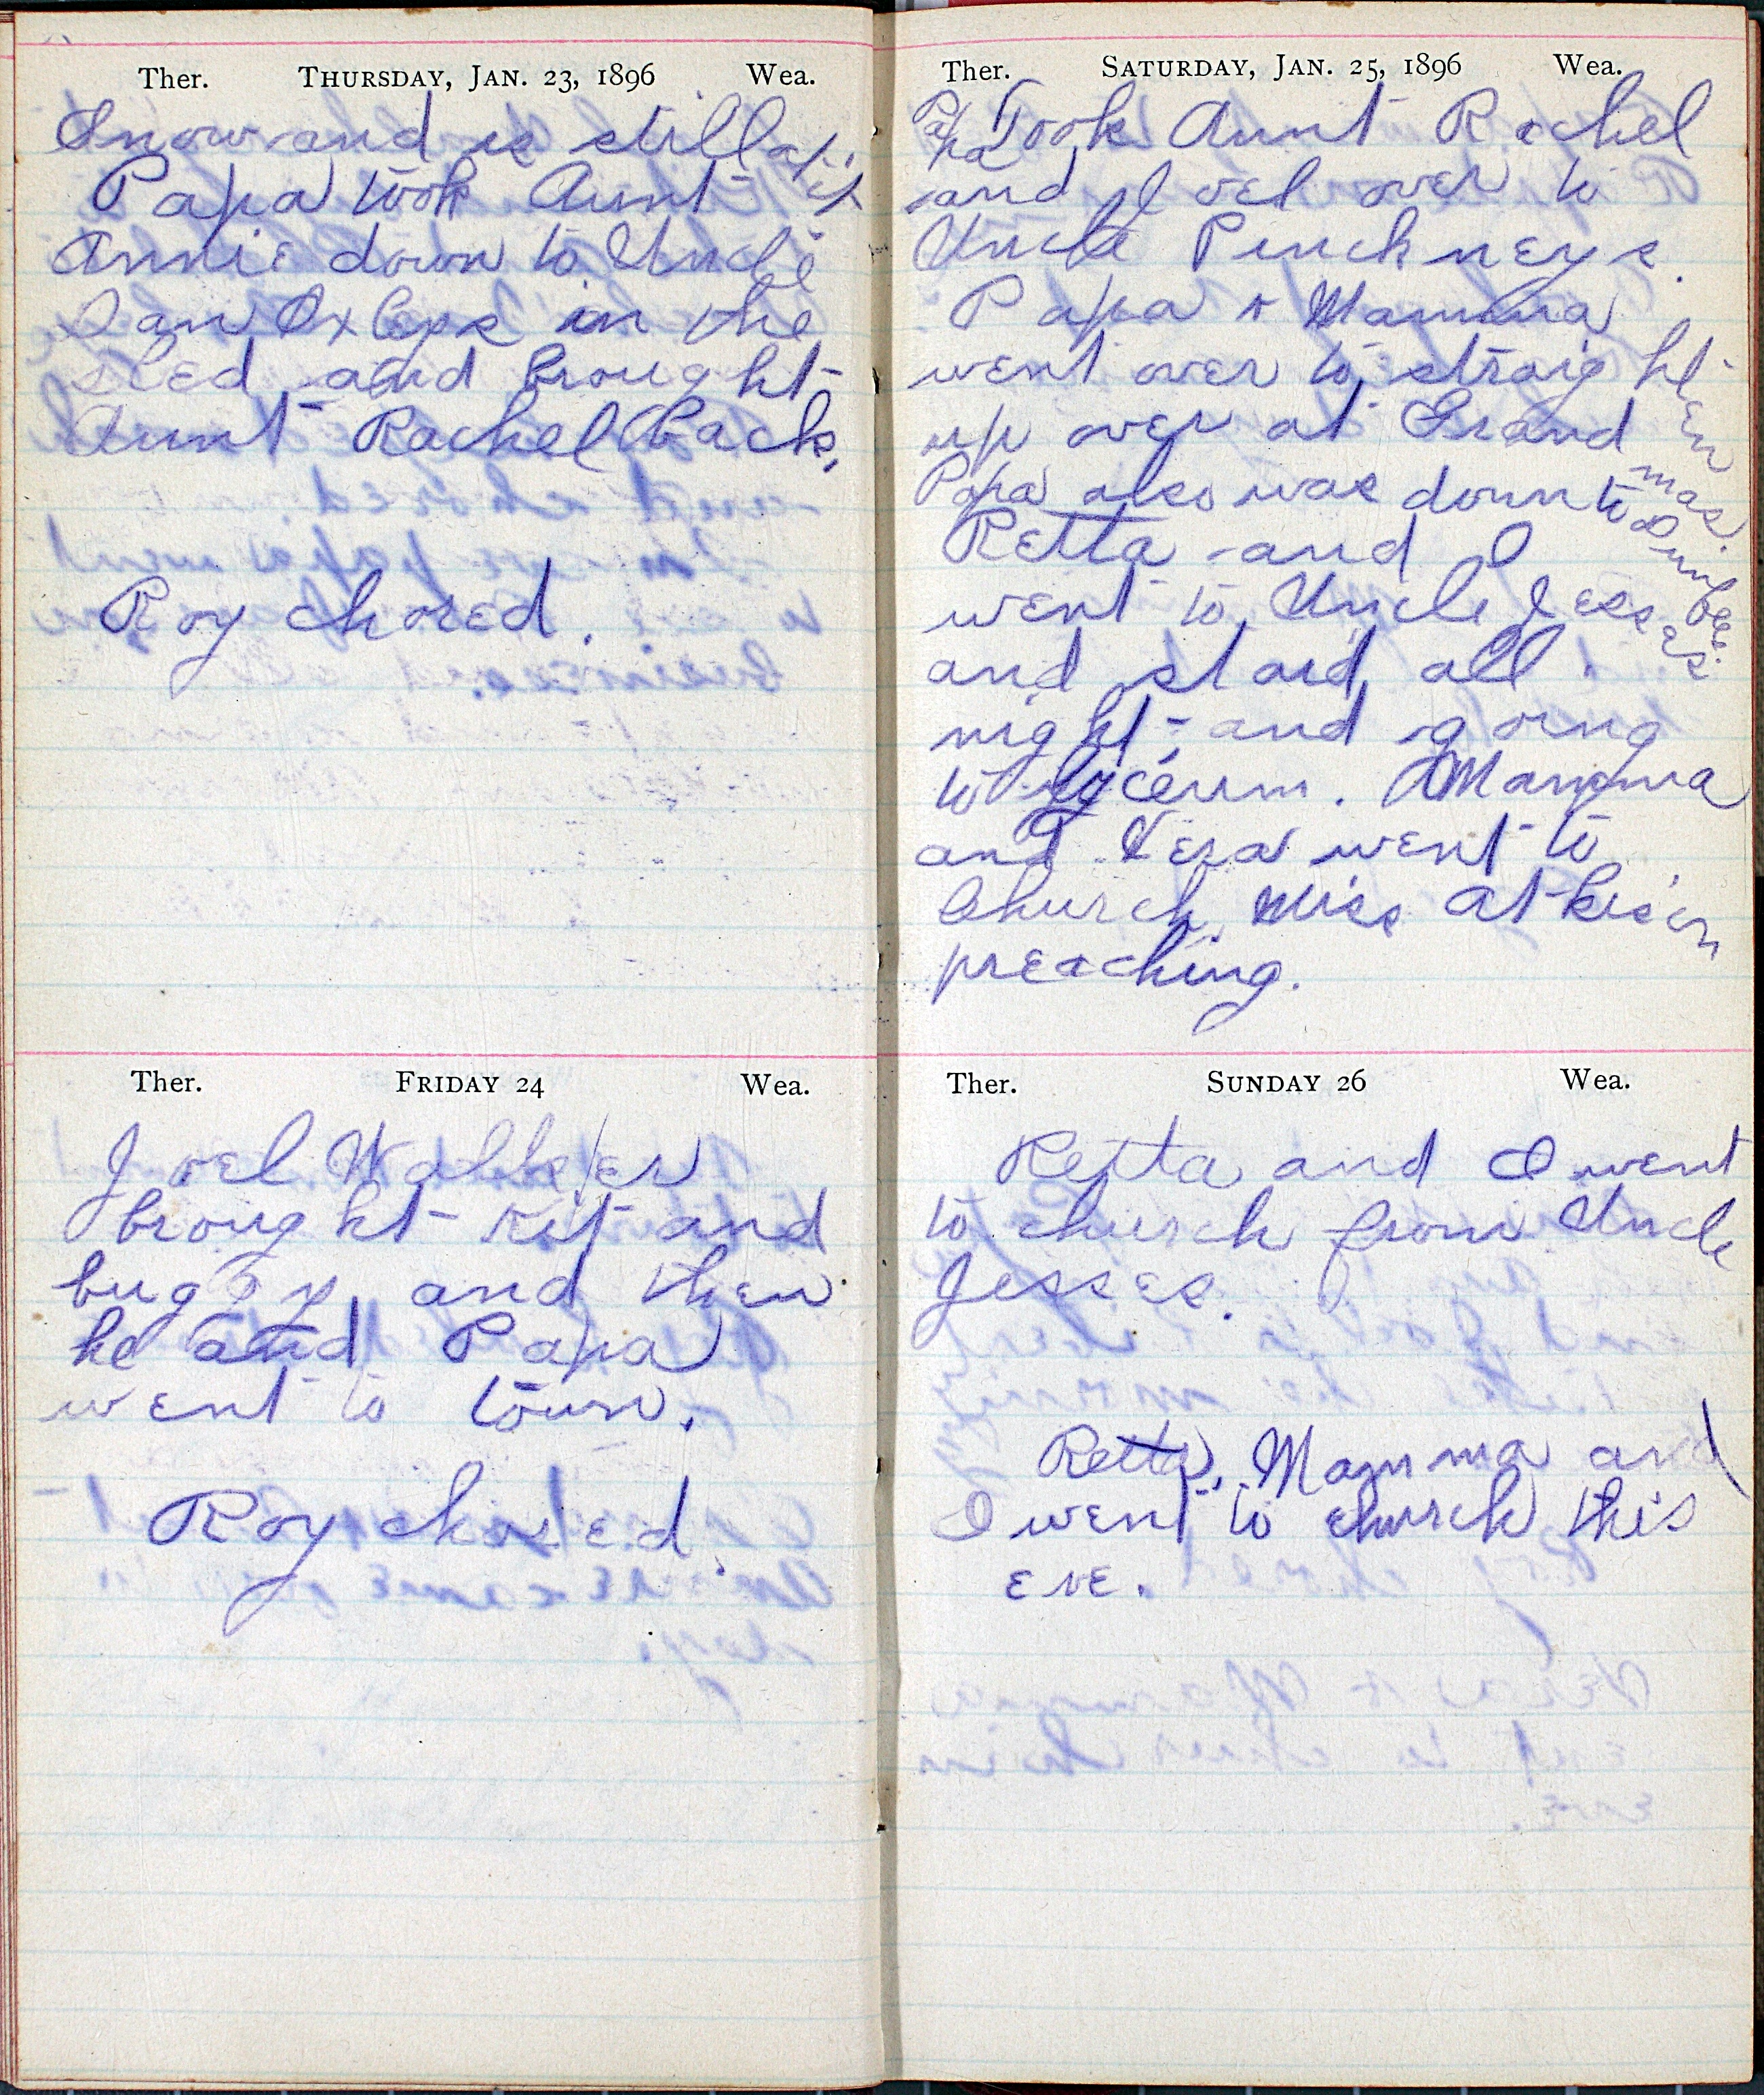 Ther. THURSDAY, JAN. 23, 1896 Wea.
Snow and is still at it
Papa took Aunt
Annie down to Uncle
Ian Oxleys in the
sled and brought
Aunt Rachel back,
Roy chored.
Ther. FRIDAY 24 Wea.
Joel Walker
brought kit and
buggy, and then
he and Papa
went to town.
Roy chored.
Ther. SATURDAY, JAN. 25, 1896 Wea.
Papa Took Aunt Rachel
and Joel over to
Uncle Pinchneys.
Papa & Mamma
went over to straighten
up over at Grandmas.
Papa also was down to
Retta and I
went to Uncle Jesses.
and staid all
night, and going
to lyceum. Mamma
and Vera went to
Church. Miss Atkison
preaching.
Ther. SUNDAY 26 Wea.
Retta and I went
to church from Uncle
Jesses.
Retta, Mamma and
I went to church this
eve.